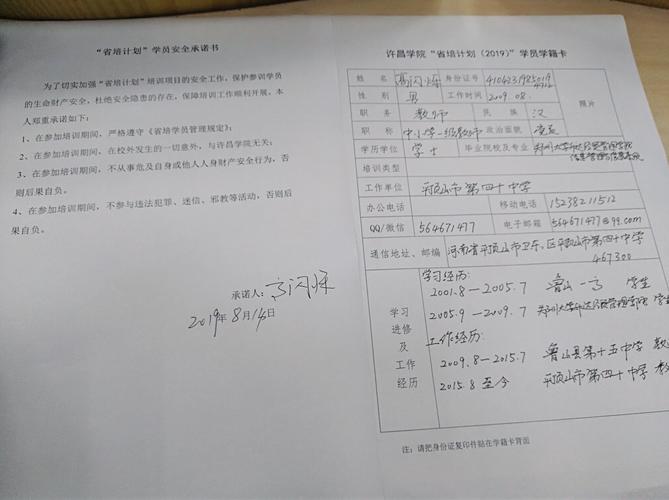 “省培计划”学员安全承诺书
为了切实加强“省培计划”培训项目的安全工作，保护参训学员
的生命财产安全，杜绝安全隐患的存在，保障培训工作顺利开展，本
人郑重承诺如下：
1、在参加培训期间，严格遵守《省培学员管理规定》；
2、在参加培训期间，在校外发生的一切意外，与许昌学院无关；
3、在参加培训期间，不从事危及自身或他人人身财产安全行为，否
则后果自负。
4、在参加培训期间，不参与违法犯罪、迷信、邪教等活动，否则后
果自负。
承诺人：高闪
2019年8月14日
许昌学院“省培计划（2019）”学员学籍卡
姓名 高闪 身份证号
性别 男 工作时间 2009.08. 照片
职务 教师 民族 汉
职称 中小学一级教师 政治面貌 党员
学历学位 学士 毕业院校及专业 郑州大学
信息管理与信息系统
培训类型
工作单位 平顶山市第四十中学
办公电话 移动电话 15238211512
QQ/微信 564671477 电子邮箱 564671477@qq.com
通信地址、邮编 河南省平顶山市卫东区平顶山市第四十中学
467300
学习进修及工作经历
学习经历：
2001.8—2005.7 鲁山一高 学生
2005.9—2009.7 郑州大学 学生
工作经历：
2009.8—2015.7 鲁山县第十五中学 教
2015.8至今 平顶山市第四十中学 教
注：请把身份证复印件贴在学籍卡背面